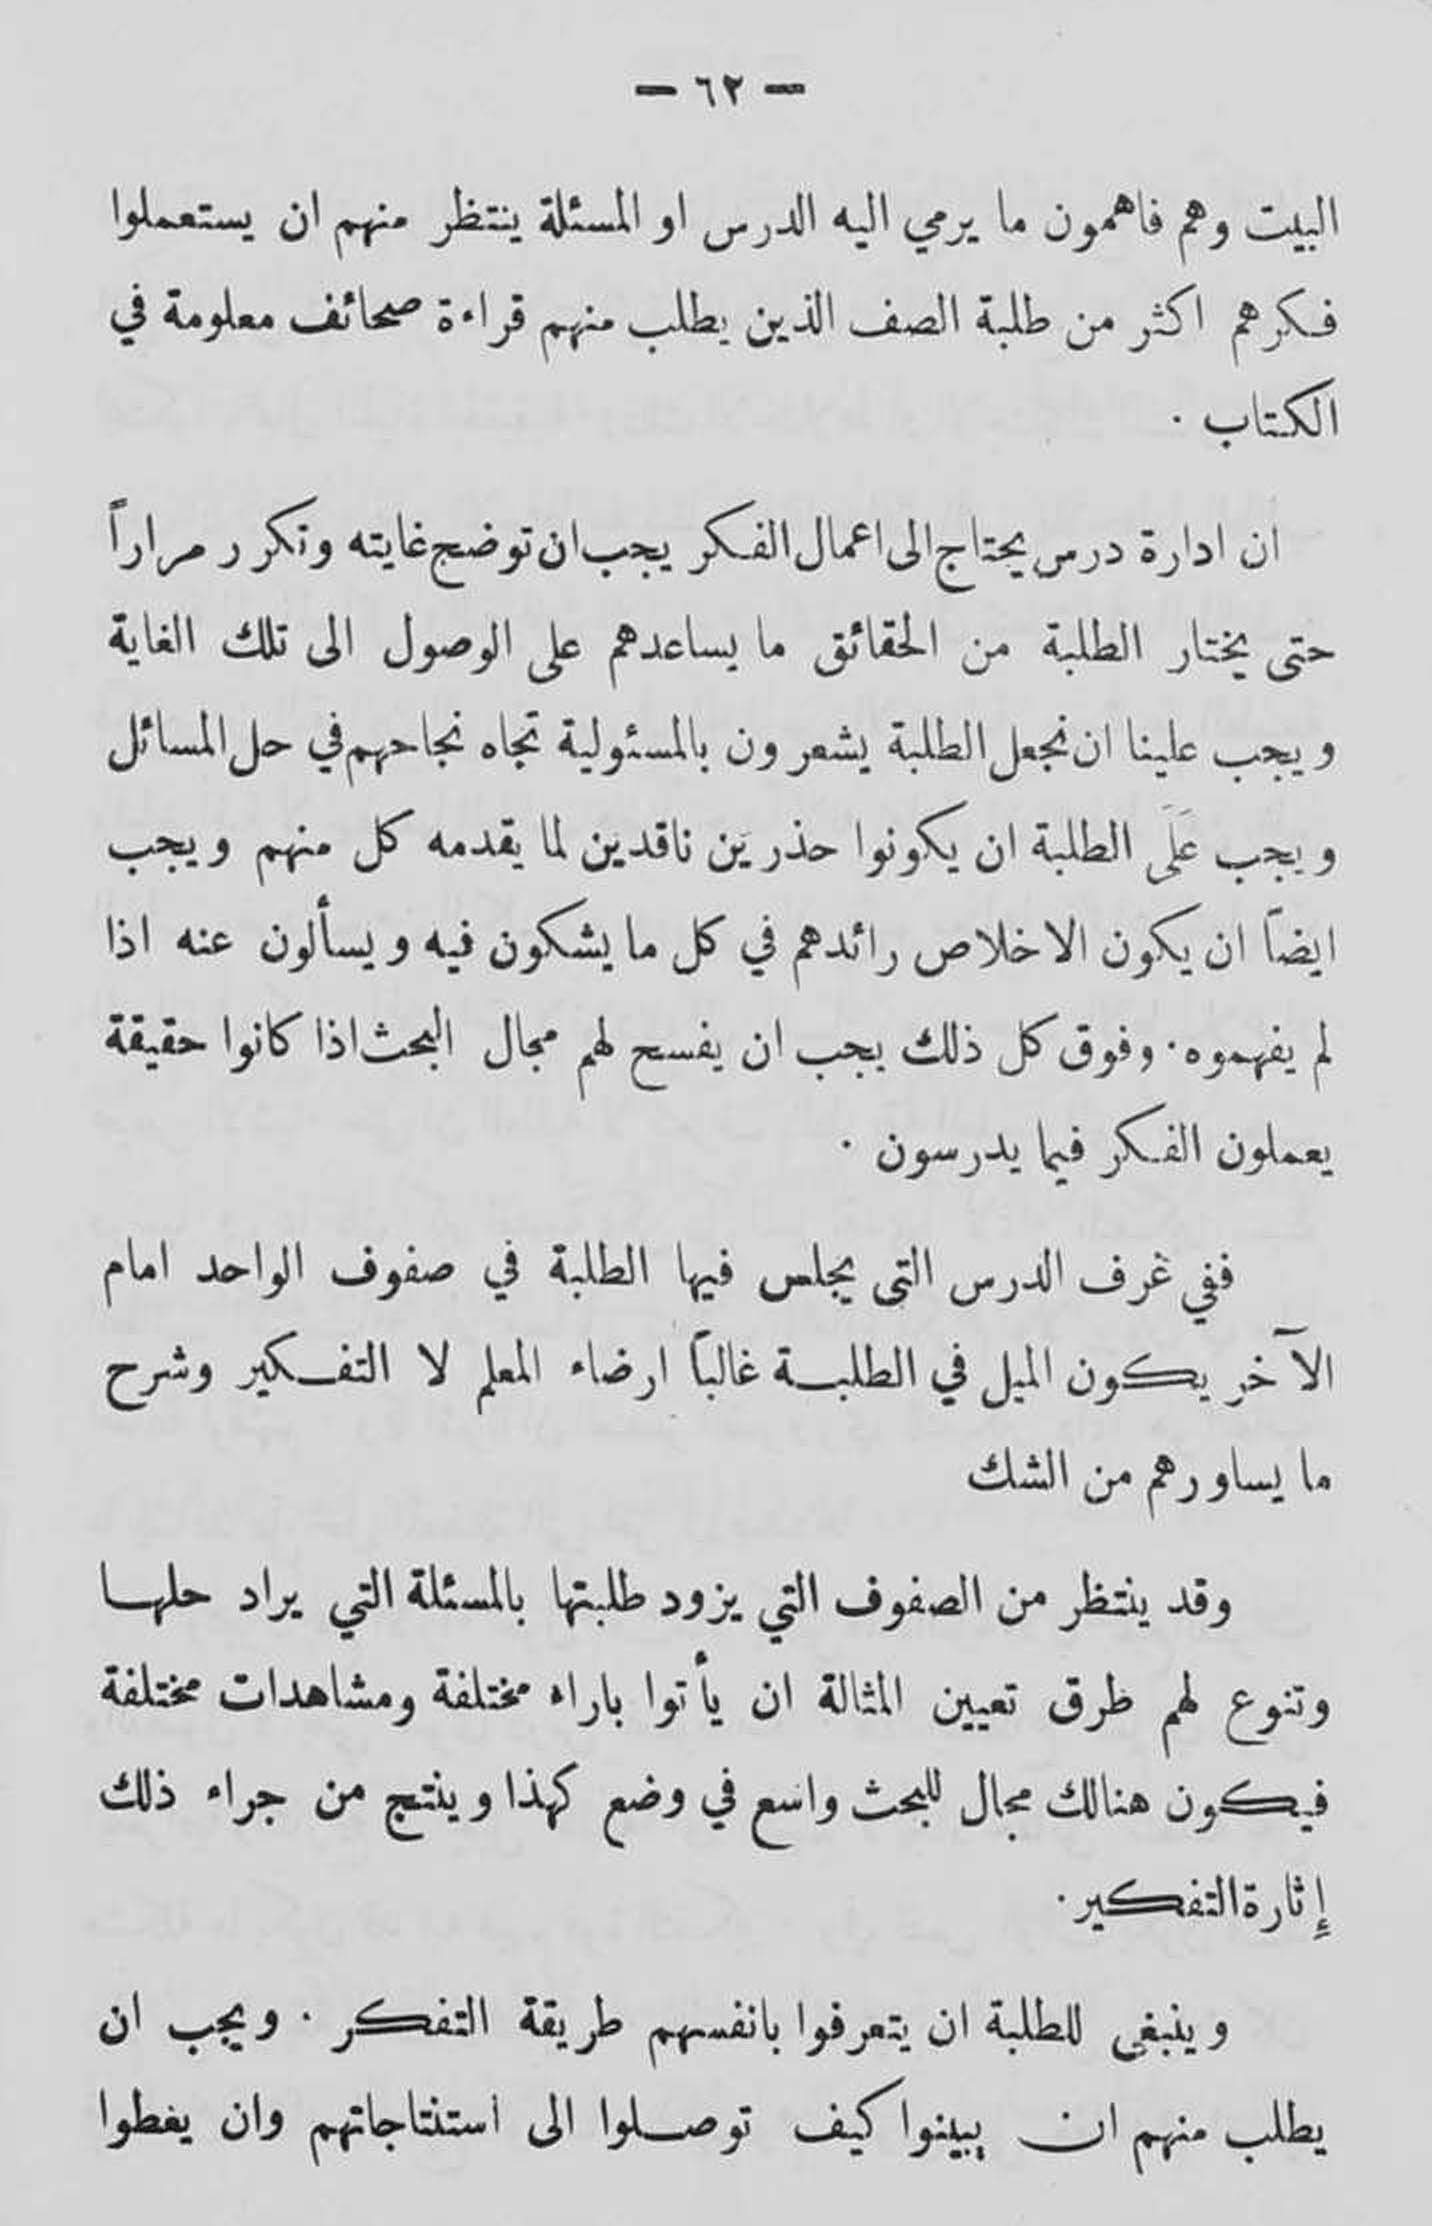 — ٦٢ —
البيت وهم فاهمون ما يرمي اليه الدرس او المسئلة ينتظر منهم ان يستعملوا
فكرهم اكثر من طلبة الصف الذين يطلب منهم قراءة صحائف معلومة في
الكتاب .
ان ادارة درس يحتاج الى اعمال الفكر يجب ان توضح غايته وتكرر مراراً
حتى يختار الطلبة من الحقائق ما يساعدهم على الوصول الى تلك الغاية
ويجب علينا ان نجعل الطلبة يشعرون بالمسئولية تجاه نجاحهم في حل المسائل
ويجب عَلَى الطلبة ان يكونوا حذرين ناقدين لما يقدمه كل منهم ويجب
ايضاً ان يكون الاخلاص رائدهم في كل ما يشكون فيه ويسألون عنه اذا
لم يفهموه . وفوق كل ذلك يجب ان يفسح لهم مجال البحث اذا كانوا حقيقة
يعملون الفكر فيما يدرسون .
ففي غرف الدرس التى يجلس فيها الطلبة في صفوف الواحد امام
الآخر يكون الميل في الطلبة غالباً ارضاء المعلم لا التفكير وشرح
ما يساورهم من الشك
وقد ينتظر من الصفوف التي يزود طلبتها بالمسئلة التي يراد حلها
وتنوع لهم طرق تعيين المثالة ان يأتوا باراء مختلفة ومشاهدات مختلفة
فيكون هنالك مجال للبحث واسع في وضع كهذا وينتج من جراء ذلك
إثارة التفكير .
وينبغى للطلبة ان يتعرفوا بانفسهم طريقة التفكر . ويجب ان
يطلب منهم ان يبينوا كيف توصلوا الى استنتاجاتهم وان يغطوا